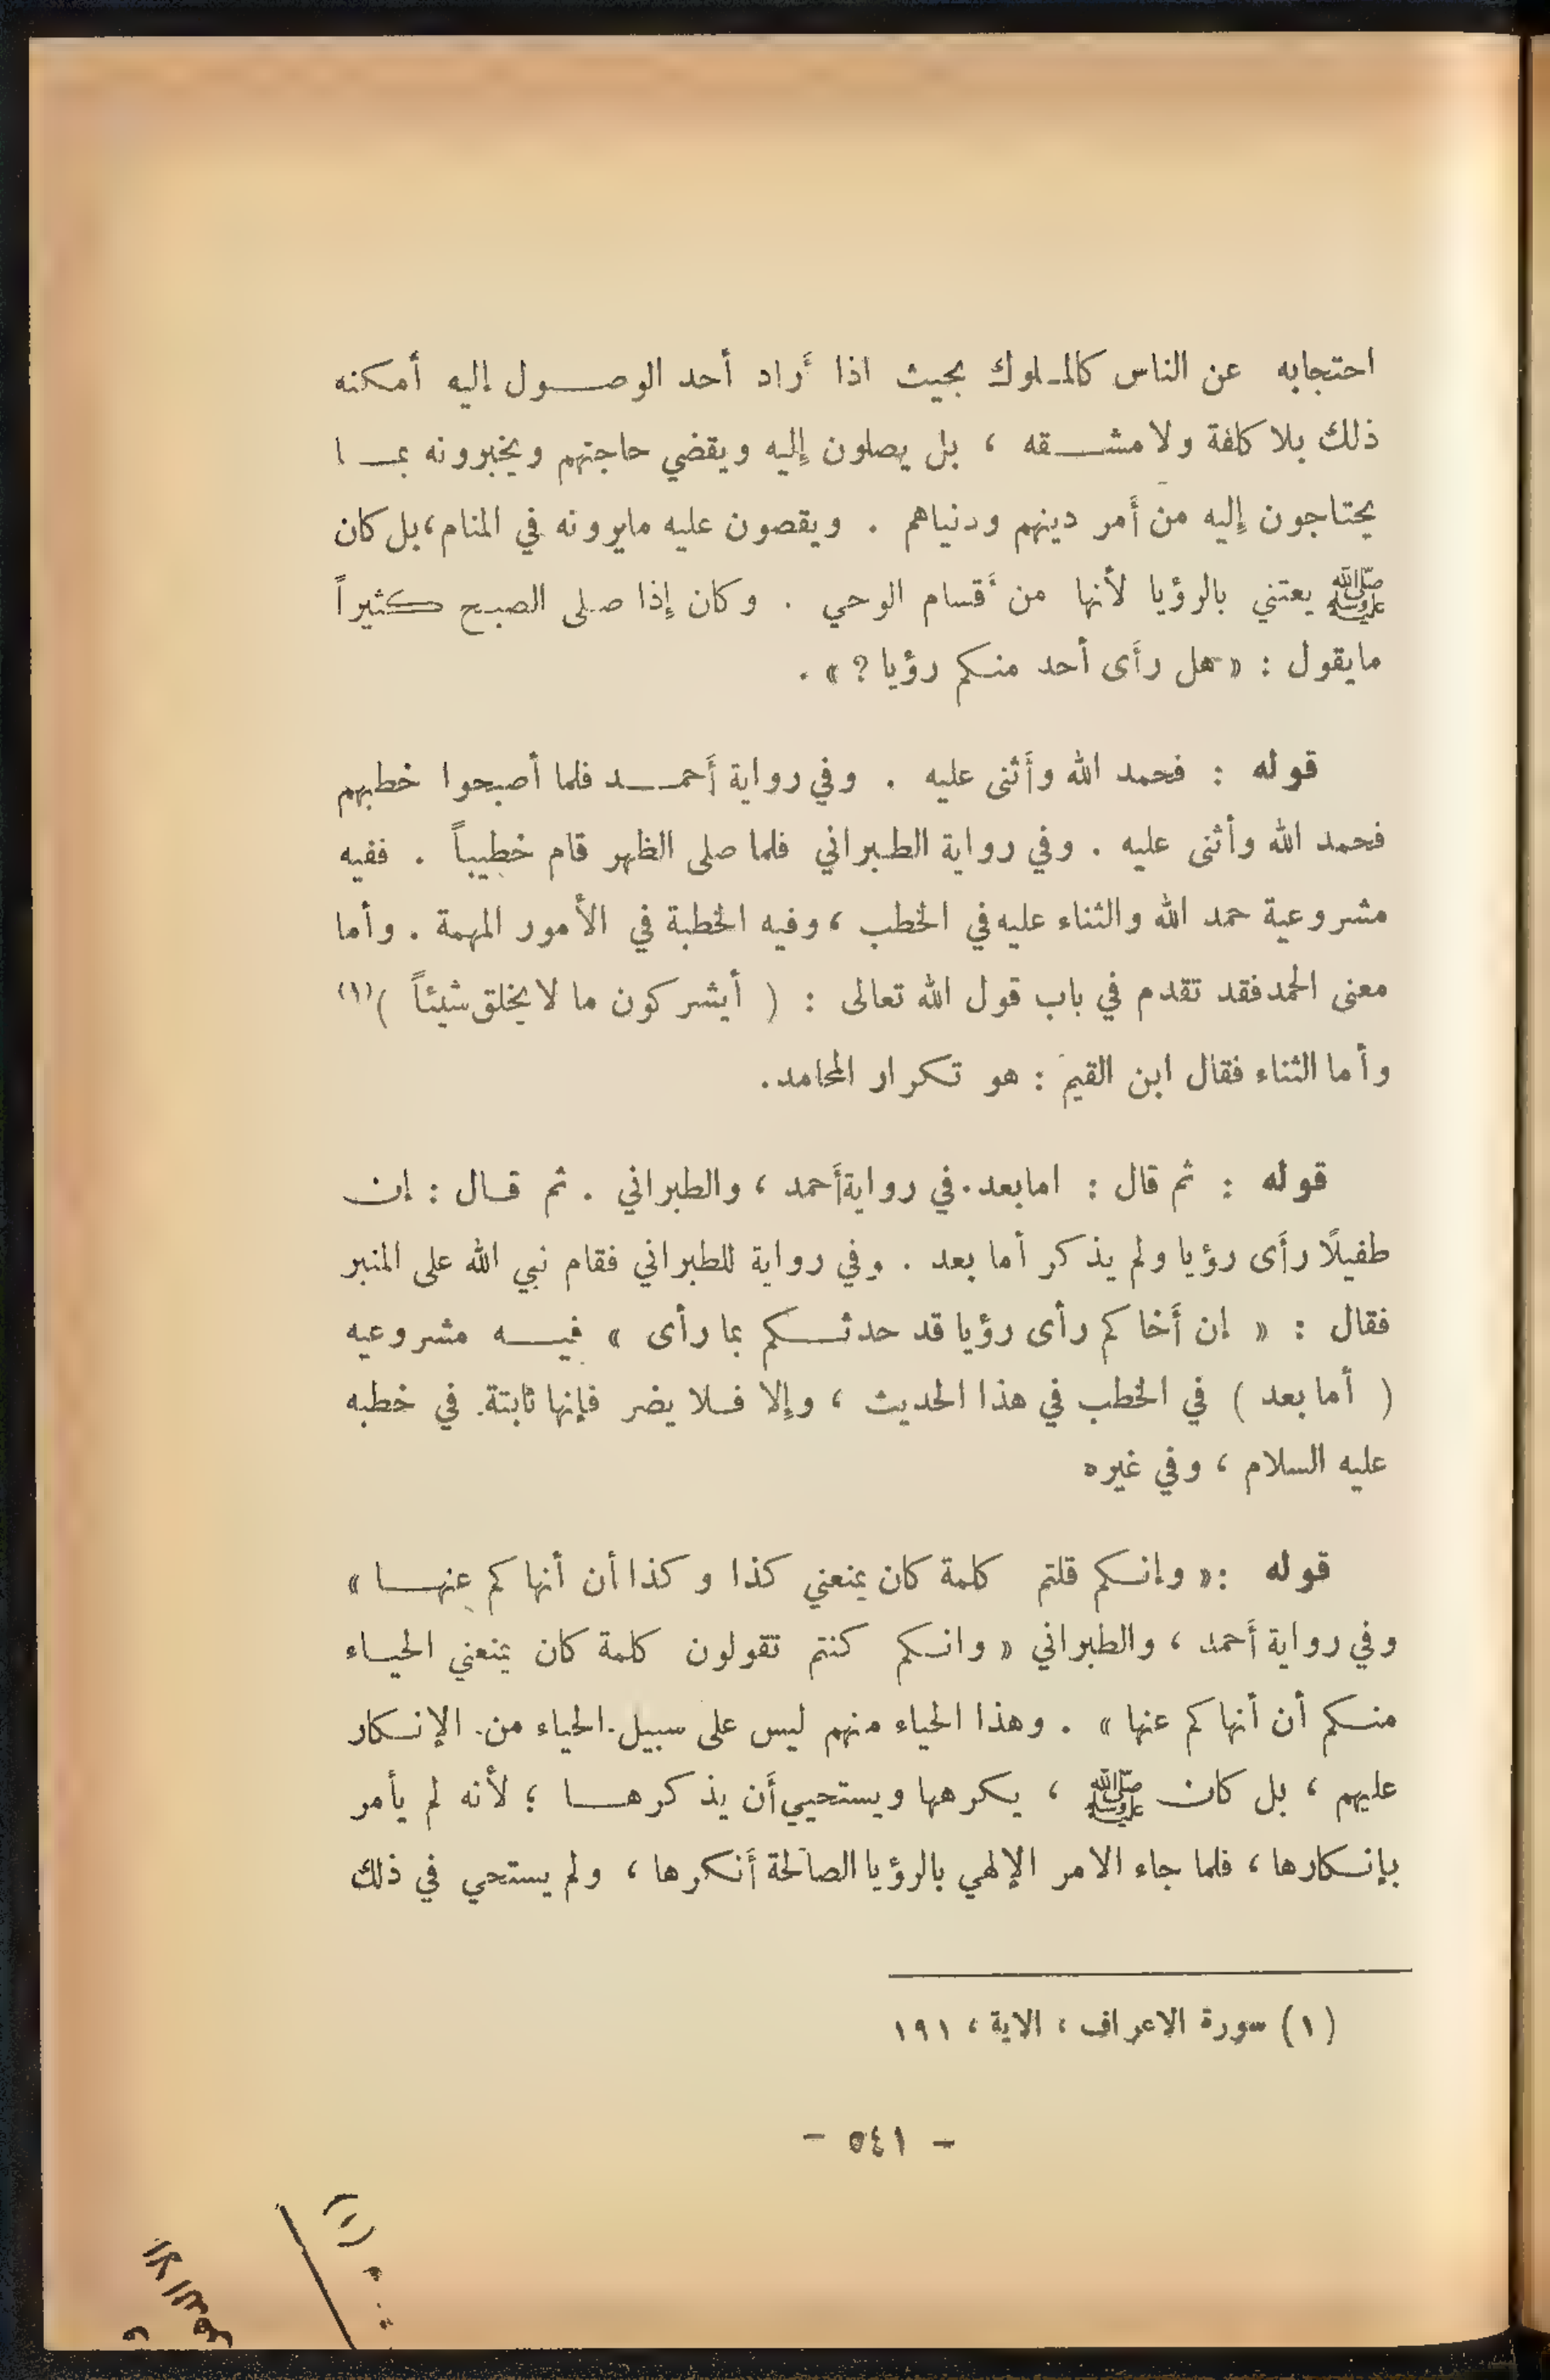 احتجابه عن الناس كالملوك بحيث اذا أراد أحد الوصول إليه أمكنه
ذلك بلا كلفة ولا مشقه ، بل يصلون إليه ويقضي حاجتهم ويخبرونه بما
يحتاجون إليه من أمر دينهم ودنياهم . ويقصون عليه مايرونه في المنام، بل كان
ﷺ يعتني بالرؤيا لأنها من أقسام الوحي . وكان إذا صلى الصبح كثيراً
مايقول : « هل رأى أحد منكم رؤيا ؟ » .
قوله : فحمد الله وأثنى عليه . وفي رواية أحمد فلما أصبحوا خطبهم
فحمد الله وأثنى عليه . وفي رواية الطبراني فلما صلى الظهر قام خطيباً . ففيه
مشروعية حمد الله والثناء عليه في الخطب ، وفيه الخطبة في الأمور المهمة . وأما
معنى الحمد فقد تقدم في باب قول الله تعالى : ( أيشركون ما لا يخلق شيئاً )(١)
وأما الثناء فقال ابن القيم : هو تكرار المحامد.
قوله : ثم قال : امابعد. في رواية أحمد ، والطبراني . ثم قال : إن
طفيلًا رأى رؤيا ولم يذكر أما بعد . وفي رواية للطبراني فقام نبي الله على المنبر
فقال : « إن أخاكم رأى رؤيا قد حدثكم بما رأى » فيه مشروعيه
( أما بعد ) في الخطب في هذا الحديث ، وإلا فلا يضر فإنها ثابتة في خطبه
عليه السلام ، وفي غيره
قوله :« وإنكم قلتم كلمة كان يمنعني كذا وكذا أن أنهاكم عنها »
وفي رواية أحمد ، والطبراني « وانكم كنتم تقولون كلمة كان يمنعني الحياء
منكم أن أنهاكم عنها » . وهذا الحياء منهم ليس على سبيل الحياء من الإنكار
عليهم ، بل كان ﷺ ، يكرهها ويستحيي أن يذكرها ؛ لأنه لم يأمر
بإنكارها ، فلما جاء الامر الإلهي بالرؤيا الصالحة أنكرها ، ولم يستحي في ذلك
(١) سورة الاعراف ، الاية ، ١٩١
- ٥٤١ -